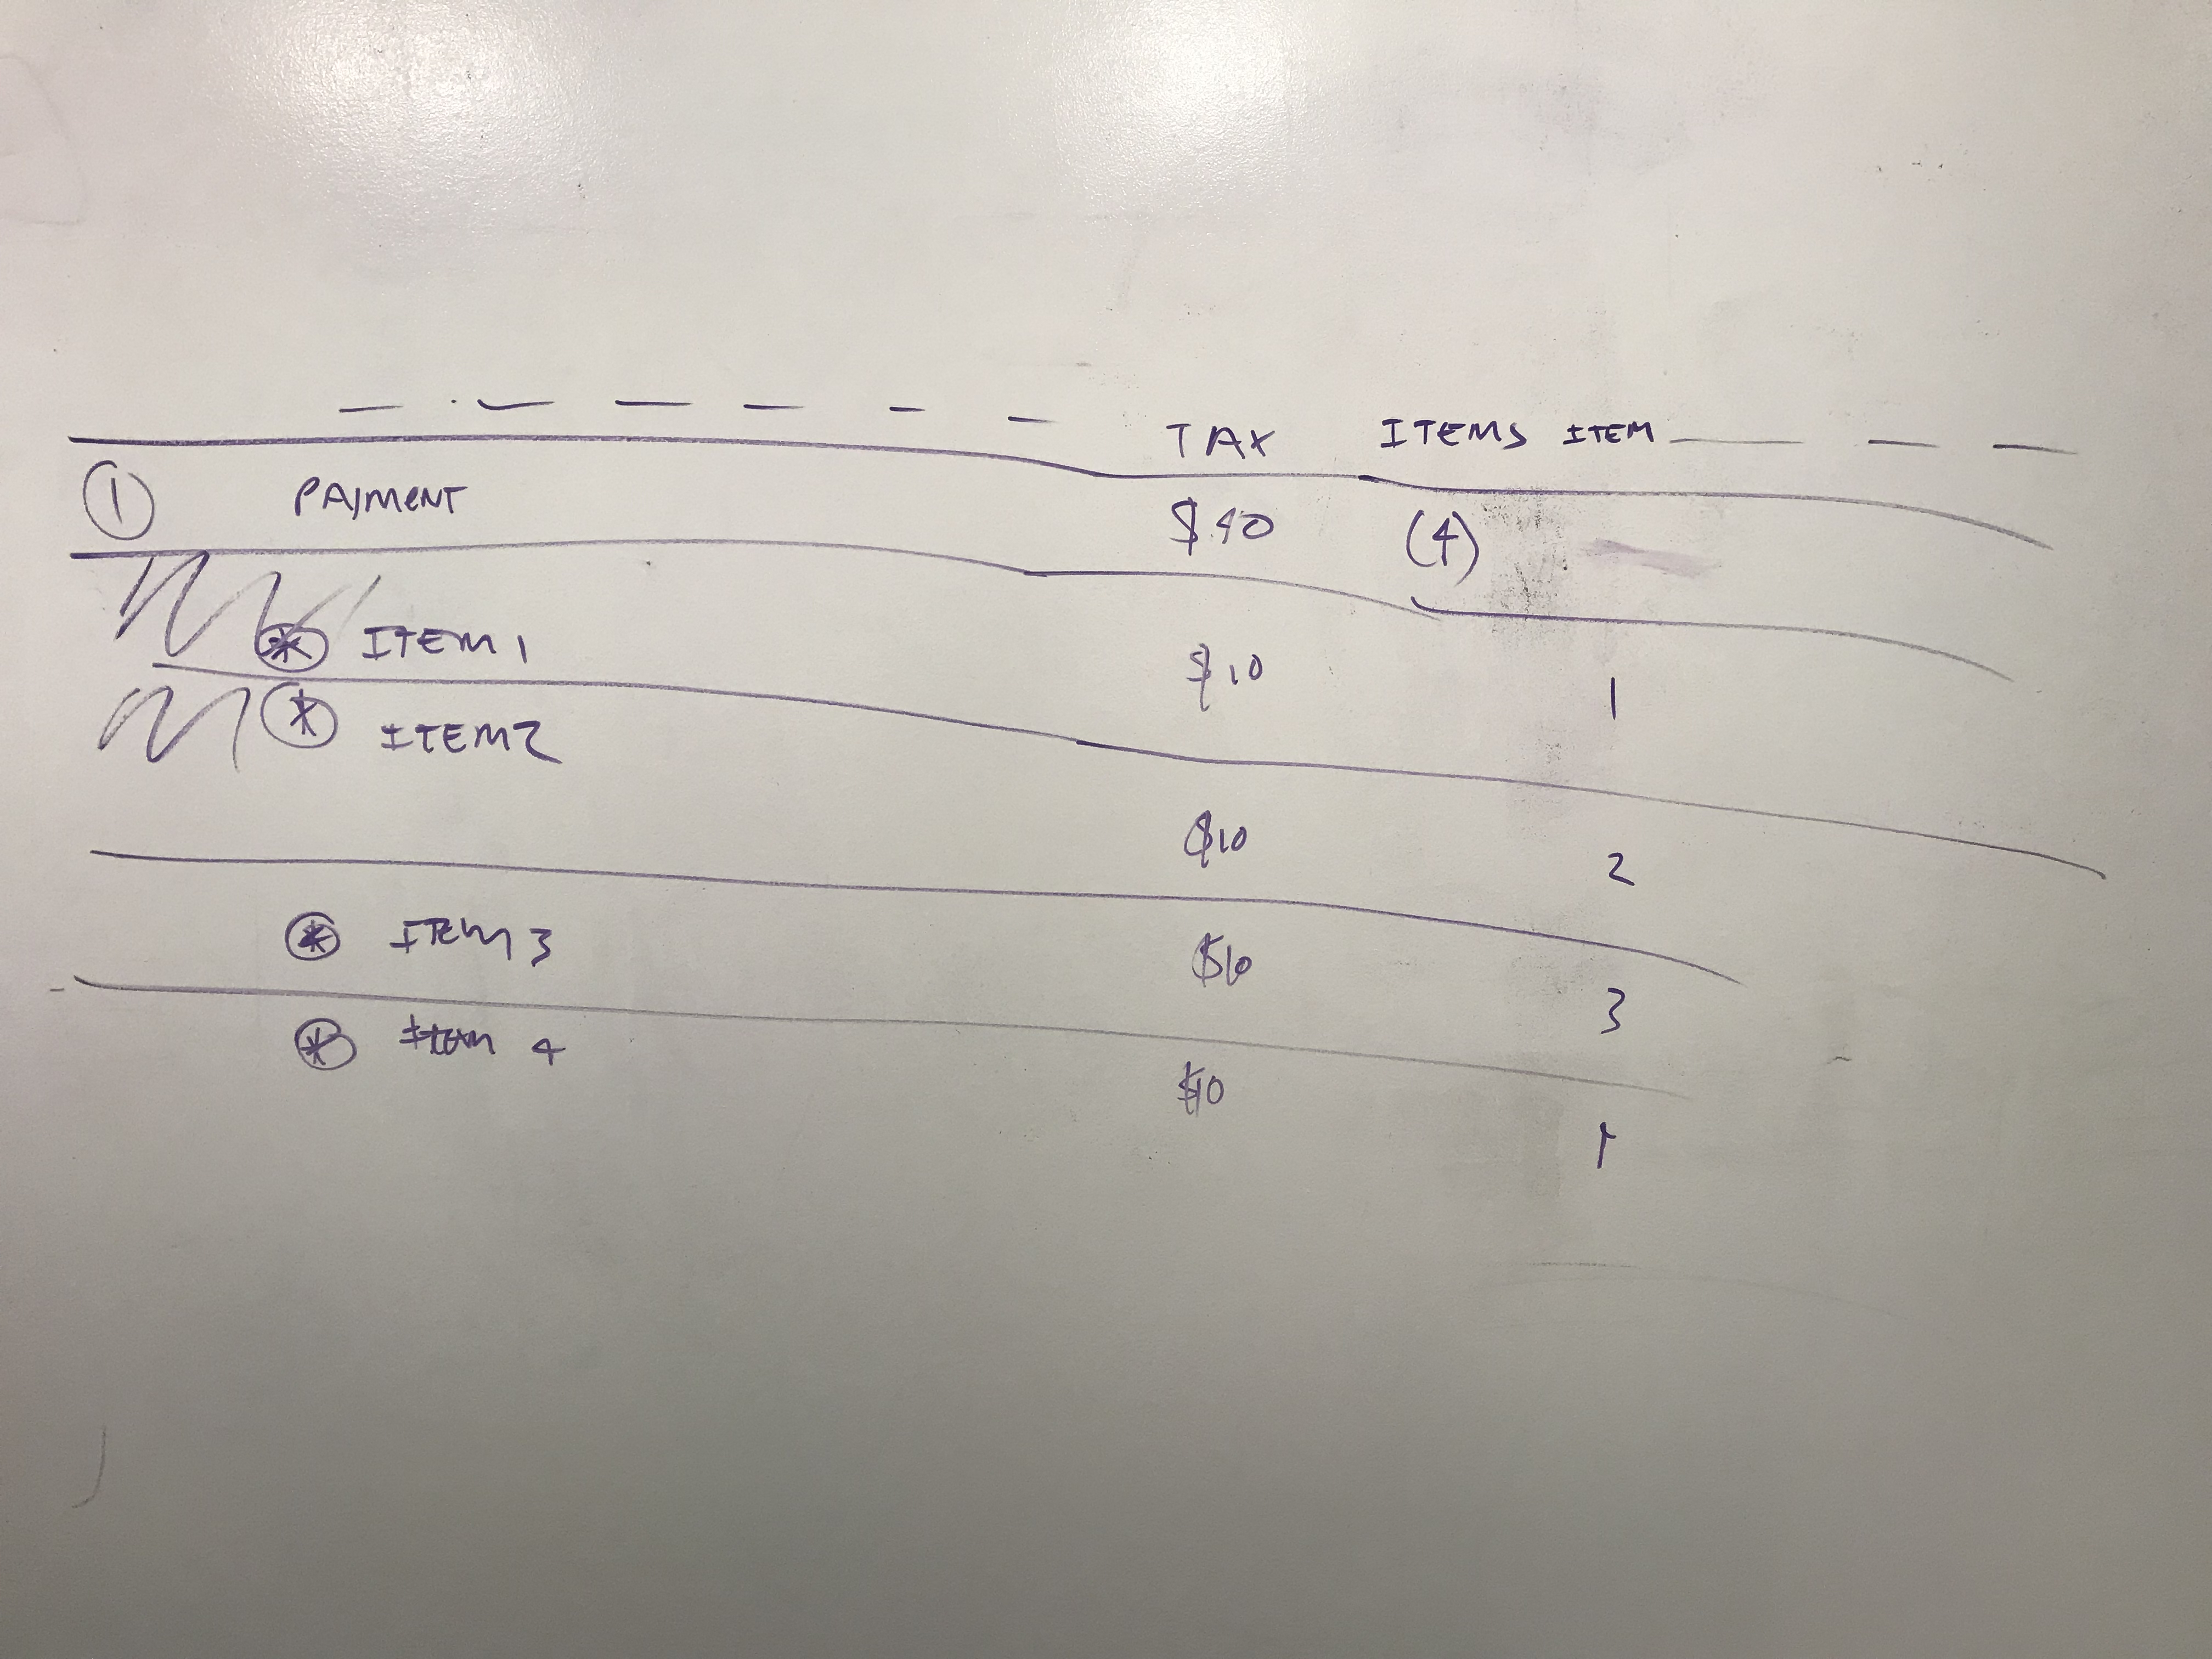 TAX ITEMS ITEM
① PAYMENT $40 (4)
* ITEM 1 $10 1
* ITEM 2 $10 2
* ITEM 3 $10 3
* ITEM 4 $10